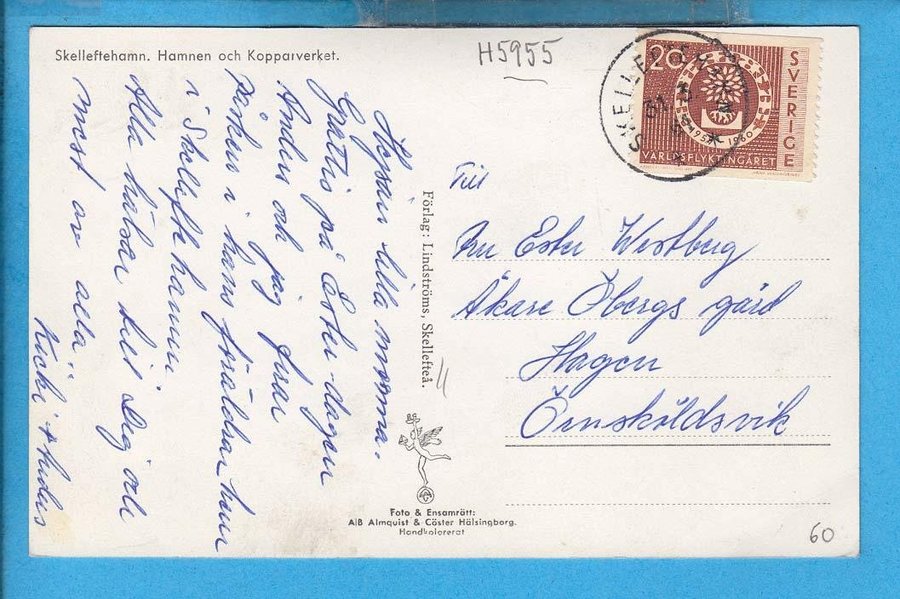 Skelleftehamn. Hamnen och Kopparverket.
H5955
Hejsan lilla mormor.
Grattis på Ester-dagen
Anders och jag firar
påsken i hans föräldrar hem
i Skelleftehamn.
Alla hälsar till Dig och
mest av alla:
Kicki + Anders
Förlag: Lindströms, Skellefteå.
SKELLEFTEHAMN
31 3
20
SVERIGE
1959 1960
VÄRLDSFLYKTINGÅRET
Till
Fru Ester Westberg
Åkare Öbergs gård
Hagen
Örnsköldsvik
Foto & Ensamrätt:
A/B Almquist & Cöster Hälsingborg.
Handkolorerat
60